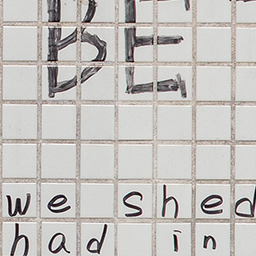 BE
we shed
had in